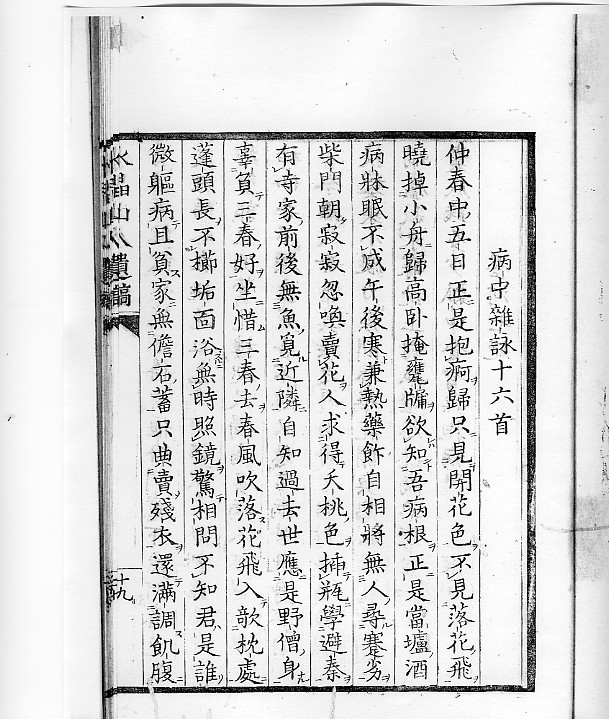 病中雜詠十六首
仲春中五日正是抱痾歸只見開花色不見落花飛
曉掉小舟歸高卧掩甕牖欲知吾病根正是當壚酒
病牀眠不成午後寒兼熱藥餌自相將無人尋蹇劣
柴門朝寂寂忽喚賣花人求得夭桃色揷瓶學避秦
有寺家前後無魚覓近隣自知過去世應是野僧身
辜負三春好坐惜三春去春風吹落花飛入欹枕處
蓬頭長不櫛垢面浴無時照鏡驚相問不知君是誰
微軀病且貧家無儋石蓄只典賣殘衣還滿調飢腹
山人遺稿
十九